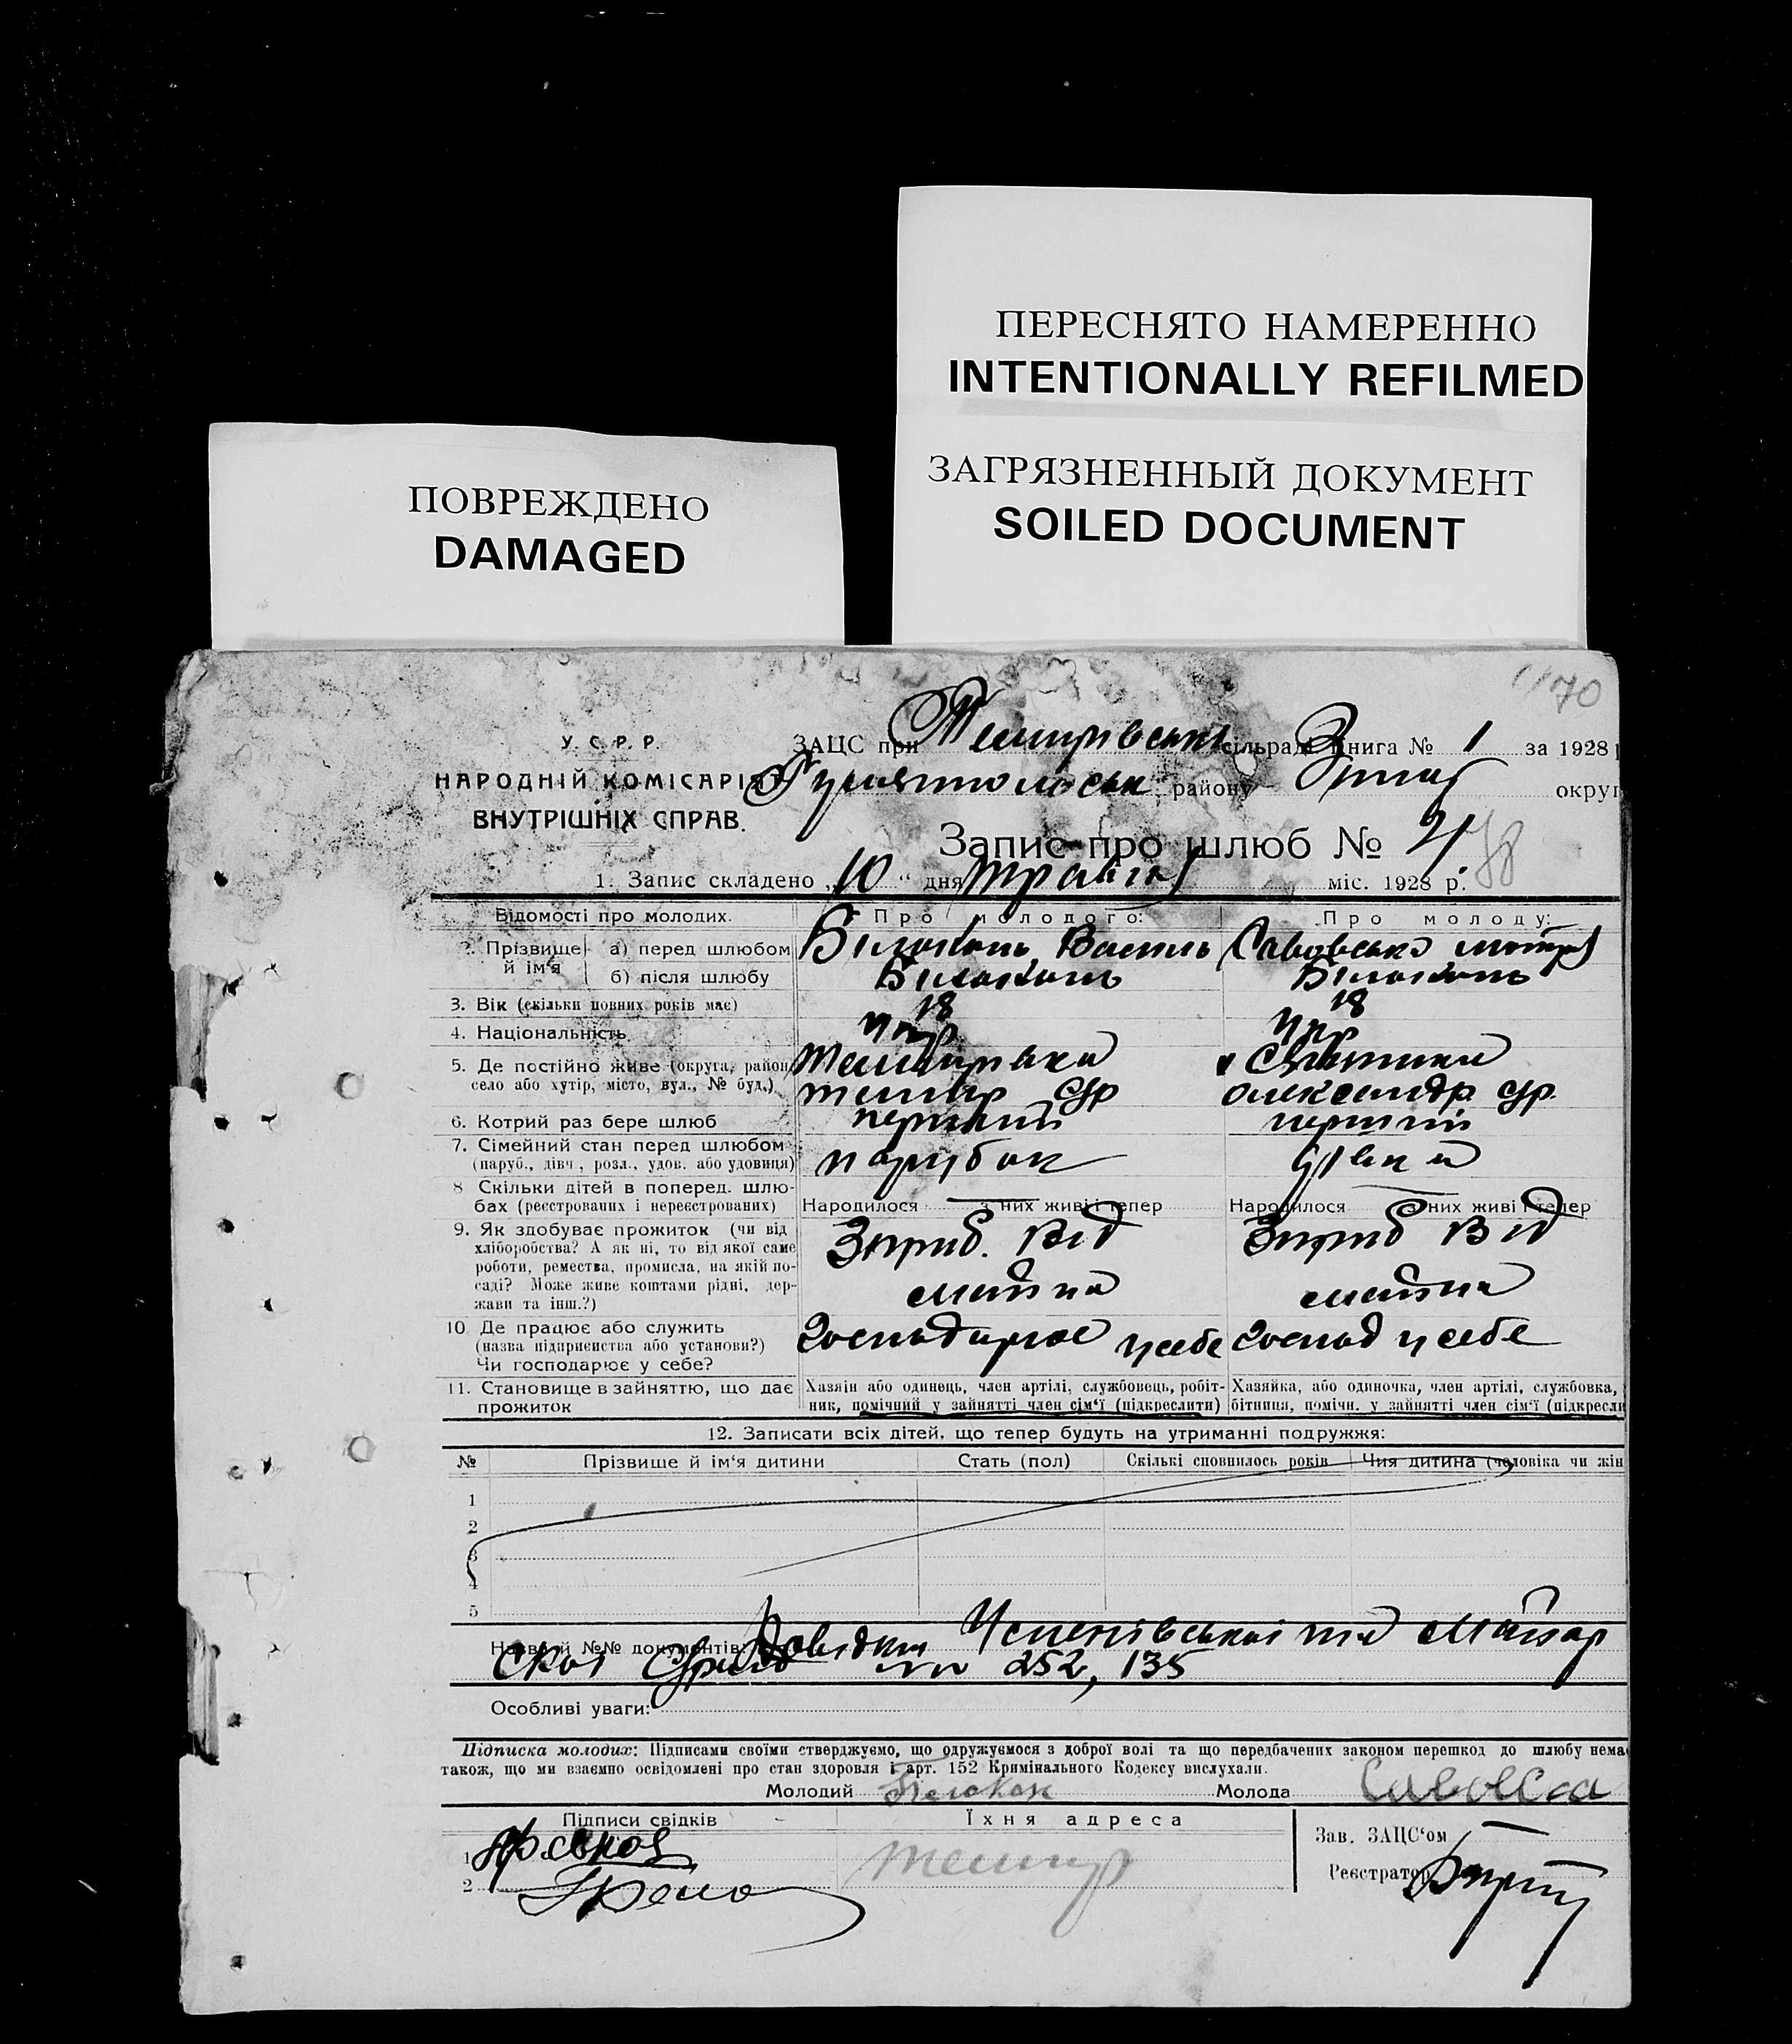 ПЕРЕСНЯТО НАМЕРЕННО
INTENTIONALLY REFILMED
ЗАГРЯЗНЕННЫЙ ДОКУМЕНТ
SOILED DOCUMENT
ПОВРЕЖДЕНО
DAMAGED
70
У. С. Р. Р.
НАРОДНІЙ КОМІСАРІЯТ
ВНУТРІШНІХ СПРАВ.
ЗАЦС при Темирівськ сільраді Книга № 1 за 1928
району округ
Запис про шлюб № 4
1. Запис складено „10“ дня травня міс. 1928 р.
Відомості про молодих. Про молодого: Про молоду:
2. Прізвище й ім'я а) перед шлюбом Білоконь Василь Савовська Мотря
б) після шлюбу Білоконь Білоконь
3. Вік (скільки повних років має) 18 18
4. Національність Укр Укр
5. Де постійно живе (округа, район, село або хутір, місто, вул., № буд.) Темирівка Темир с/р
Олександр. с/р.
6. Котрий раз бере шлюб перший перший
7. Сімейний стан перед шлюбом (паруб., дівч., розл., удов. або удовиця) парубок дівка
8 Скільки дітей в поперед. шлюбах (реєстрованих і нереєстрованих) Народилося з них живі і тепер Народилося з них живі і тепер
9. Як здобуває прожиток (чи від хліборобства? А як ні, то від якої саме роботи, ремества, промисла, на якій посаді? Може живе коштами рідні, держави та інш.?) від від
10. Де працює або служить (назва підприємства або установи?) Чи господарює у себе? Господарює у себе господ у себе
11. Становище в зайняттю, що дає прожиток Хазяін або одинець, член артілі, службовець, робітник, помічний у зайнятті член сім'ї (підкреслити) Хазяйка, або одиночка, член артілі, службовка, бітниця, помічн. у зайнятті член сім'ї (підкресли
12. Записати всіх дітей, що тепер будуть на утриманні подружжя:
№ Прізвище й ім'я дитини Стать (пол) Скількі сповнилось років Чия дитина (чоловіка чи жін
1
2
3
4
5
Назви й №№ документів: Довідки Успенівської та Майор
ської с/ради № 252, 135
Особливі уваги:
Підписка молодих: Підписами своїми стверджуємо, що одружуємося з доброї волі та що передбачених законом перешкод до шлюбу нема
також, що ми взаємно освідомлені про стан здоровля і арт. 152 Кримінального Кодексу вислухали.
Молодий Білокон Молода Савовса
Підписи свідків Їхня адреса Зав. ЗАЦС'ом
1 Темир Реєстратор
2